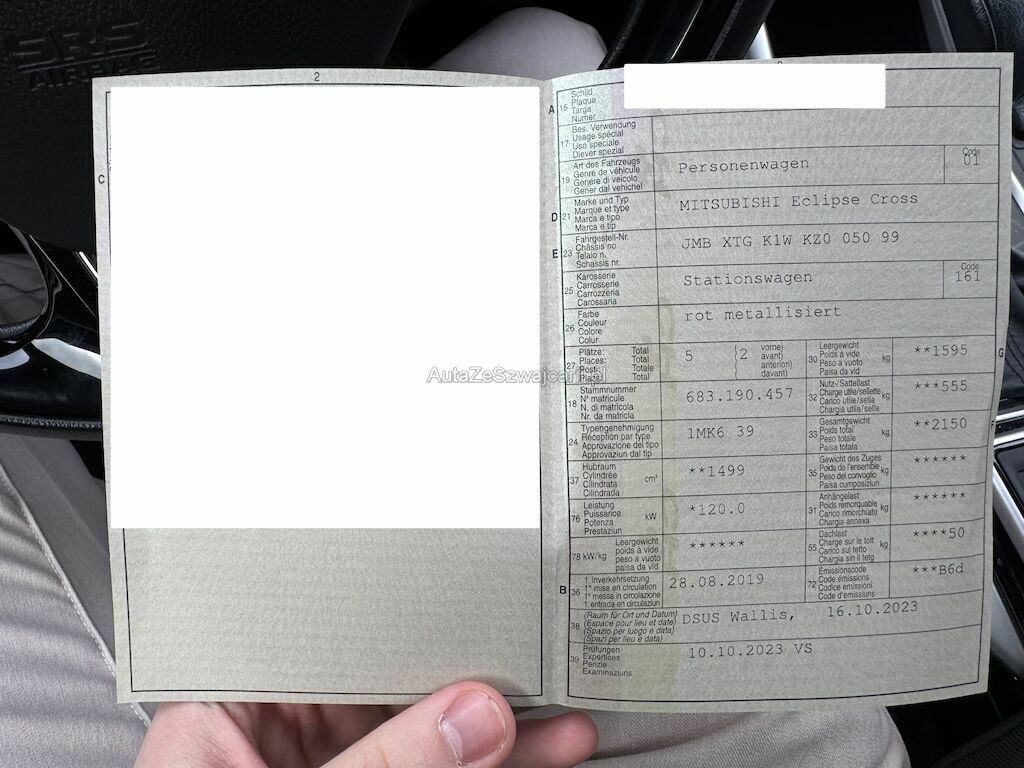 SRS
AIRBAG
2
C
A 15 Schild
Plaque
Targa
Numer
17 Bes. Verwendung
Usage spécial
Uso speciale
Diever spezial
19 Art des Fahrzeugs
Genre de véhicule
Genere di veicolo
Gener dal vehichel
Personenwagen
Code
01
D 21 Marke und Typ
Marque et type
Marca e tipo
Marca e tip
MITSUBISHI Eclipse Cross
E 23 Fahrgestell-Nr.
Châssis no
Telaio n.
Schassis nr.
JMB XTG K1W KZ0 050 99
25 Karosserie
Carrosserie
Carrozzeria
Carossaria
Stationswagen
Code
161
26 Farbe
Couleur
Colore
Colur
rot metallisiert
27 Plätze: Total
Places: Total
Posti: Totale
Plazs: Total
5 (2 vorne)
avant)
anterion)
davant)
30 Leergewicht
Poids à vide
Peso a vuoto
Paisa da vid
kg **1595
G
18 Stammnummer
N° matricule
N. di matricola
Nr. da matricla
683.190.457
32 Nutz-/Sattellast
Charge utile/sellette
Carico utile/sella
Chargia utila/sella
kg ***555
24 Typengenehmigung
Réception par type
Approvazione del tipo
Approvaziun dal tip
1MK6 39
33 Gesamtgewicht
Poids total
Peso totale
Paisa totala
kg **2150
F
37 Hubraum
Cylindrée
Cilindrata
Cilindrada
cm³ **1499
35 Gewicht des Zuges
Poids de l'ensemble
Peso del convoglio
Paisa cumposiziun
kg ******
76 Leistung
Puissance
Potenza
Prestaziun
kW *120.0
31 Anhängelast
Poids remorquable
Carico rimorchiato
Chargia annexa
kg ******
78 kW/kg Leergewicht
poids à vide
peso a vuoto
paisa da vid
******
55 Dachlast
Charge sur le toit
Carico sul tetto
Chargia sin il tetg
kg ****50
B 36 1. Inverkehrsetzung
1re mise en circulation
1a messa in circolazione
1. entrada en circulaziun
28.08.2019
72 Emissionscode
Code émissions
Codice emissioni
Code d'emissiuns
***B6d
38 (Raum für Ort und Datum)
(Espace pour lieu et date)
(Spazio per luogo e data)
(Spazi per lieu e data)
DSUS Wallis, 16.10.2023
39 Prüfungen
Expertises
Perizie
Examinaziuns
10.10.2023 VS
AutaZeSzwajcarii.pl